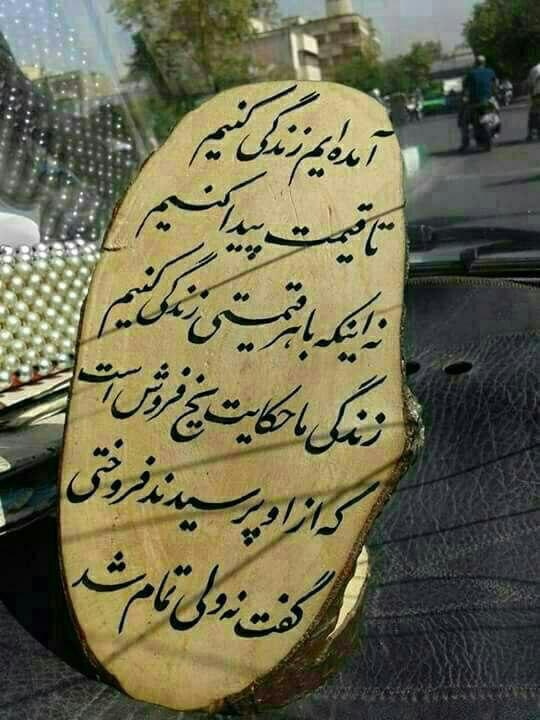 آمده ایم زندگی کنیم
تا قیمت پیدا کنیم
نه اینکه با هر قیمتی زندگی کنیم
زندگی ما حکایت یخ فروش است
که از او پرسیدند فروختی
گفت نه ولی تمام شد